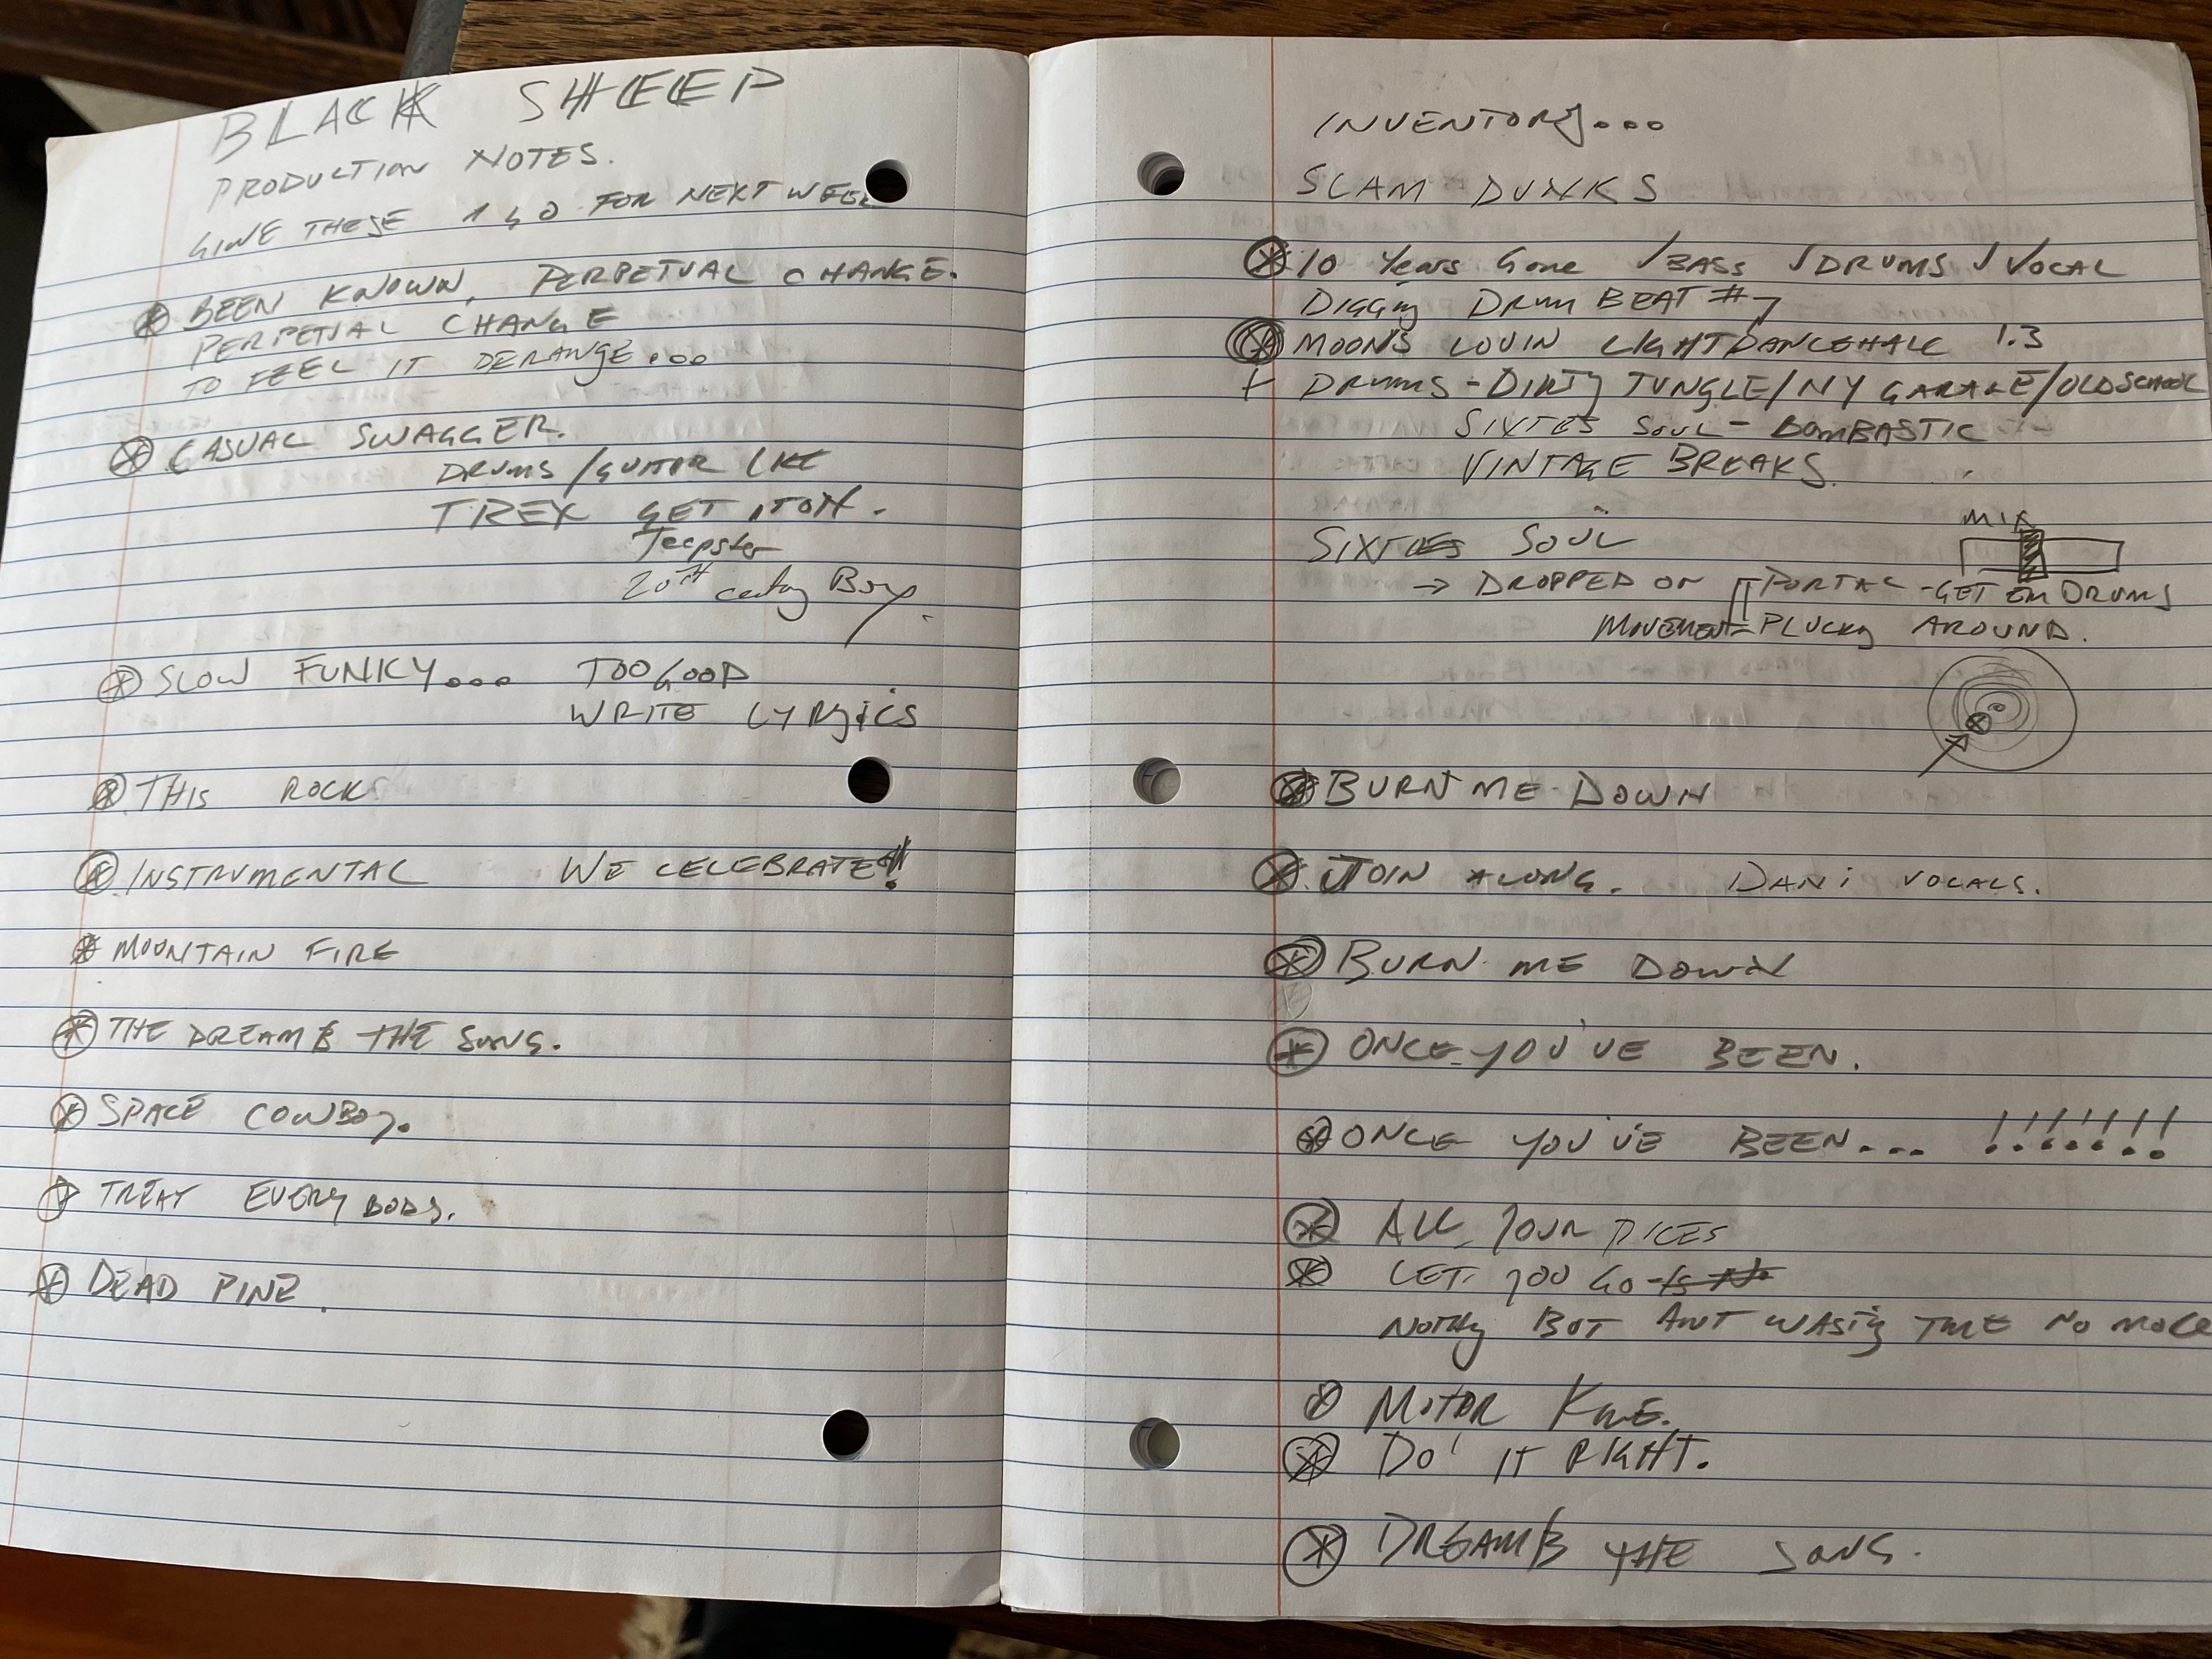 BLACK SHEEP
PRODUCTION NOTES.
GIVE THESE A GO FOR NEXT WEEK
BEEN KNOWN, PERPETUAL CHANGE.
PERPETUAL CHANGE
TO FEEL IT DERANGE...
CASUAL SWAGGER.
DRUMS/GUITAR LIKE
TREX GET IT ON.
Jeepster
20TH century Boy.
SLOW FUNKY... TOO GOOD
WRITE LYRICS
THIS ROCKS
INSTRUMENTAL WE CELEBRATE!!
MOUNTAIN FIRE
THE DREAM & THE SONG.
SPACE COWBOY.
TREAT EVERYBODY.
DEAD PINE.
INVENTORY...
SLAM DUNKS
10 Years Gone ✓BASS ✓DRUMS ✓VOCAL
DIGGING DRUM BEAT #7
MOONS LOVIN LIGHT DANCEHALL 1.3
+ DRUMS - DIRTY JUNGLE/NY GARAGE/OLDSCHOOL
SIXTES SOUL - BOMBASTIC
VINTAGE BREAKS.
MIX
SIXTIES SOUL
→ DROPPED ON PORTAL - GET EM DRUMS
MOVEMENT = PLUCKY AROUND.
BURN ME DOWN
JOIN ALONG. DANI VOCALS.
BURN ME DOWN
ONCE YOU'VE BEEN.
ONCE YOU'VE BEEN... !!!!!!!
ALL YOUR DICES
LET YOU GO
NOTHING BUT AINT WASTING TIME NO MORE
MOTOR
DO IT RIGHT.
DREAM & THE SONG.